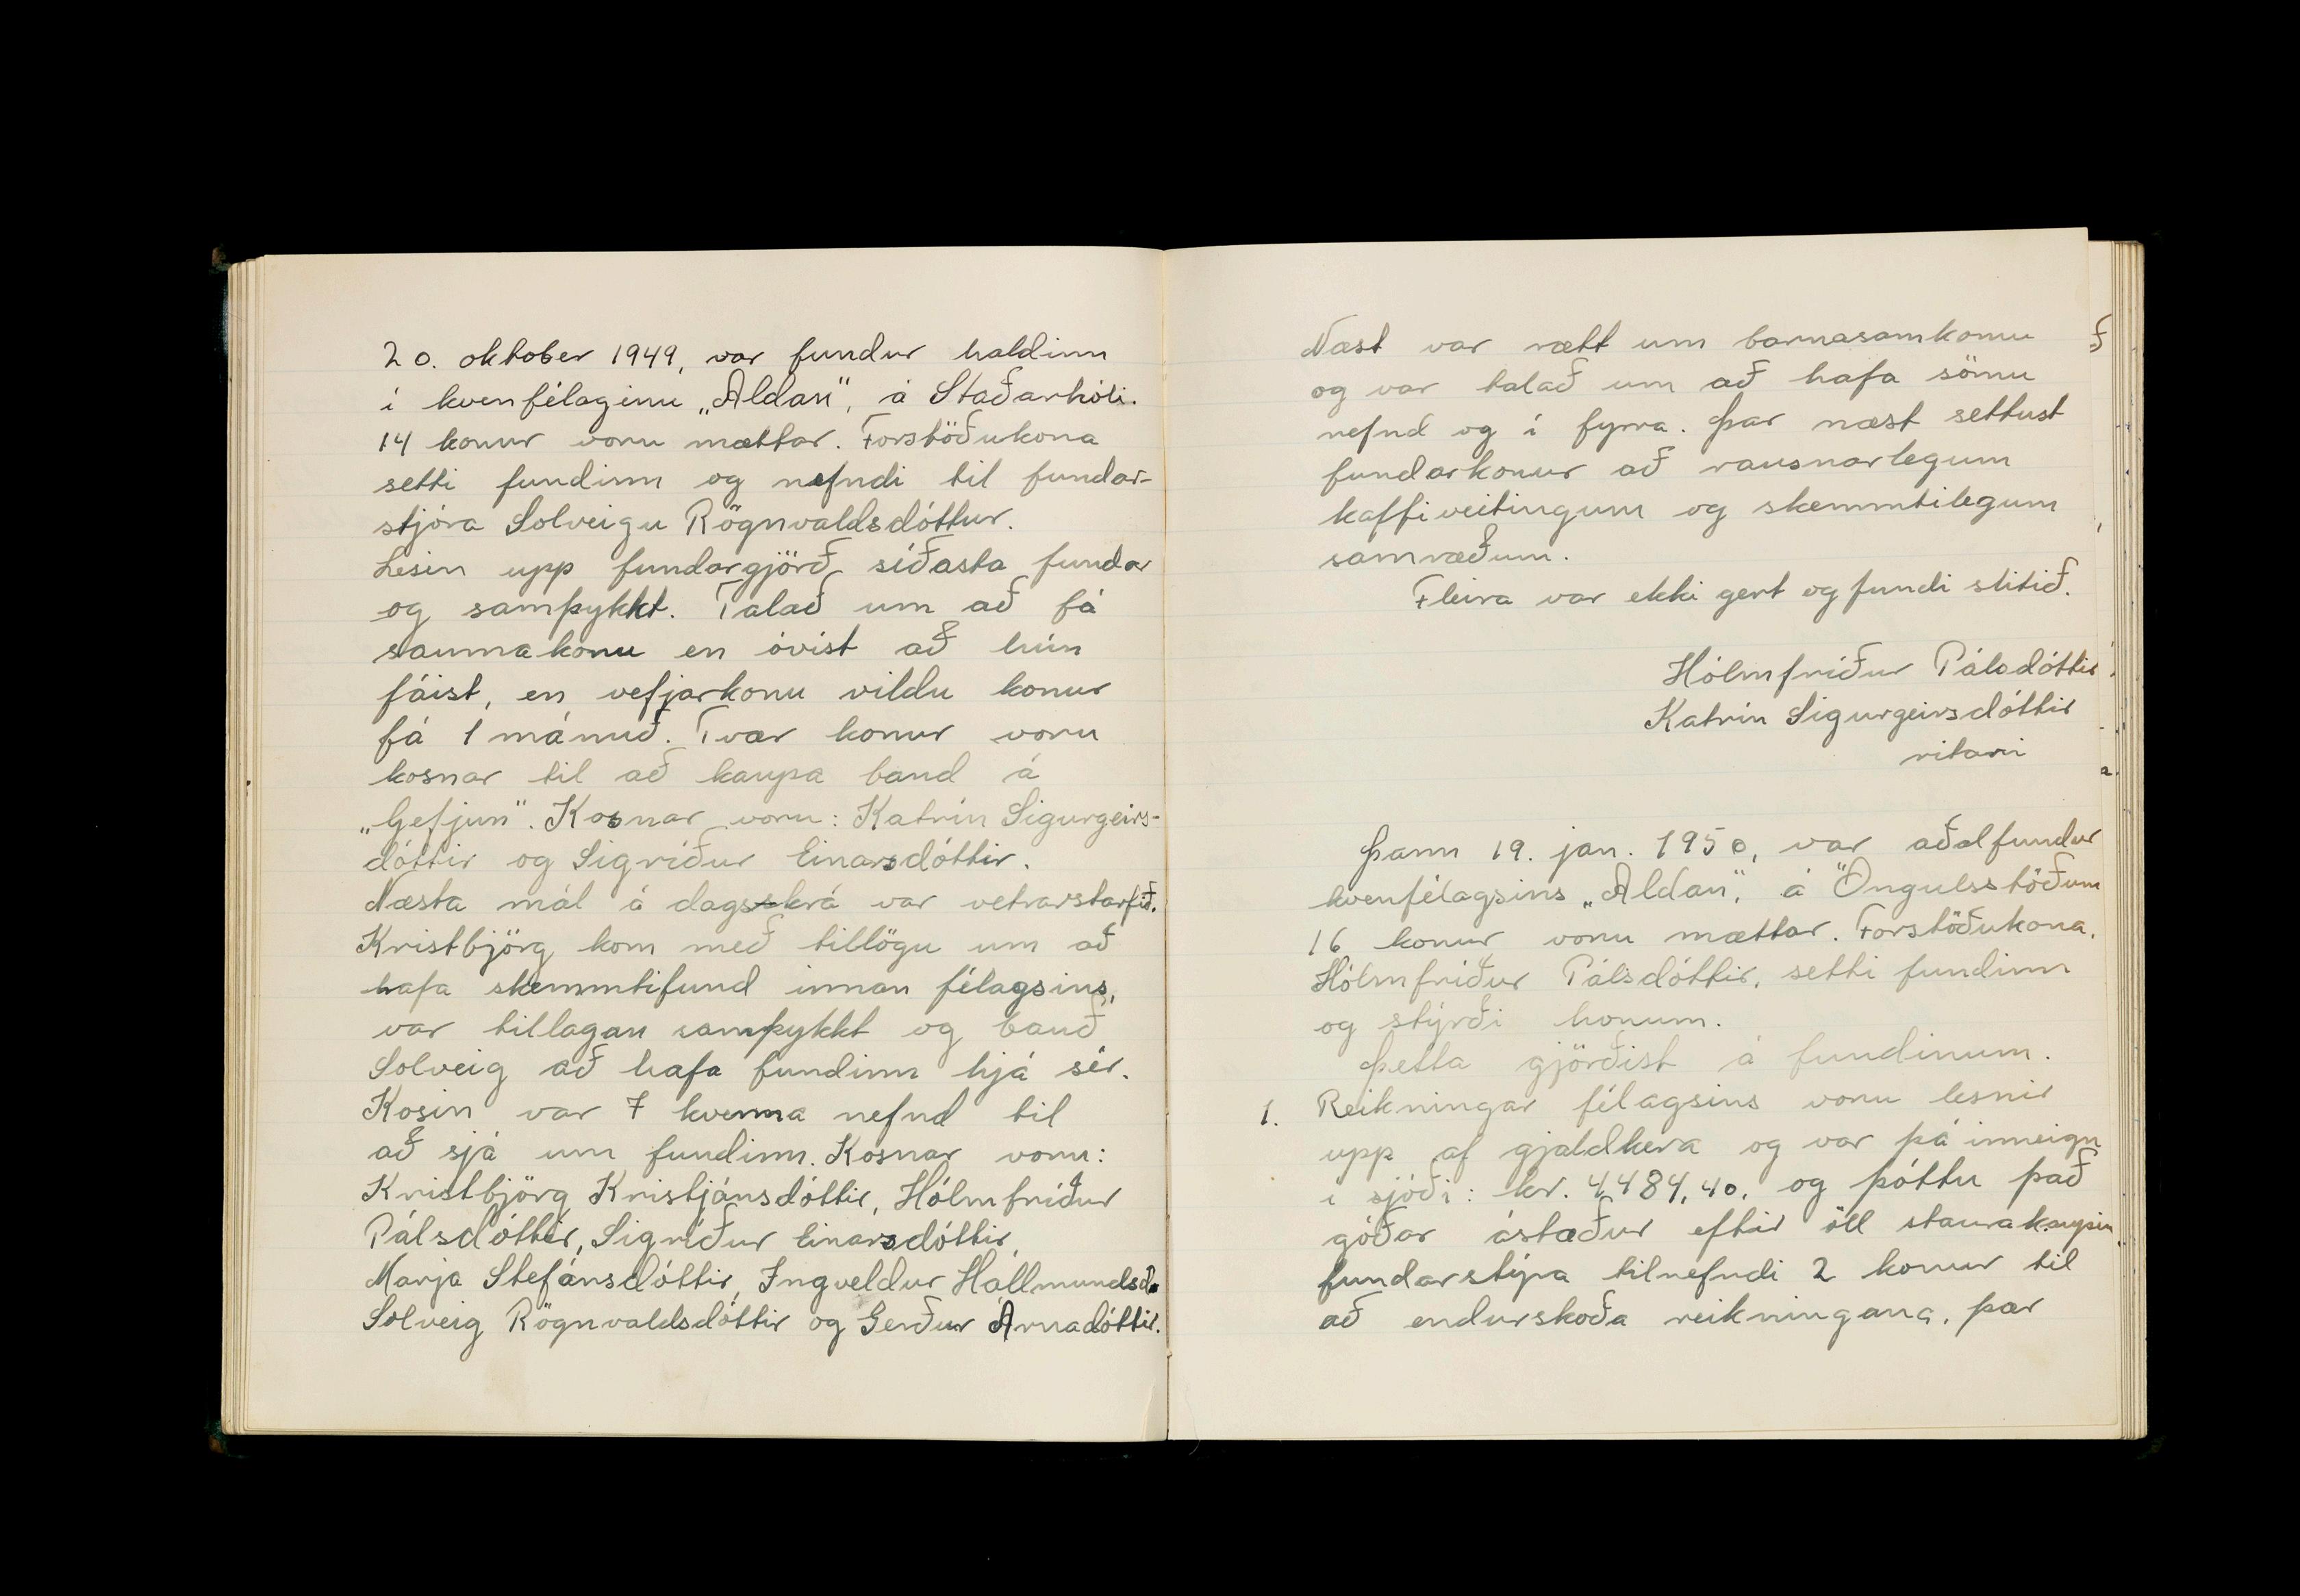 20. oktober 1949, var fundur haldinn
í kvenfélaginu „Aldan", á Staðarhóli.
14 konur voru mættar. Forstöðukona
setti fundinn og nefndi til fundar-
stjóra Solveigu Rögnvaldsdóttur.
Lesin upp fundargjörð síðasta fundar
og samþykkt. Talað um að fá
saumakonu en óvíst að hún
fáist, en vefjarkonu vildu konur
fá 1 mánuð. Tvær konur voru
kosnar til að kaupa band á
„Gefjun". Kosnar voru: Katrín Sigurgeirs-
dóttir og Sigríður Einarsdóttir.
Næsta mál á dagsskrá var vetrarstarfið.
Kristbjörg kom með tillögu um að
hafa skemmtifund innan félagsins,
var tillagan samþykkt og bauð
Solveig að hafa fundinn hjá sér.
Kosin var 7 kvenna nefnd til
að sjá um fundinn. Kosnar voru:
Kristbjörg Kristjánsdóttir, Hólmfríður
Pálsdóttir, Sigríður Einarsdóttir,
Marja Stefánsdóttir, Ingveldur Hallmundsd.
Solveig Rögnvaldsdóttir og Gerður Árnadóttir.
Næst var rætt um barnasamkomu
og var talað um að hafa sömu
nefnd og í fyrra. Þar næst settust
fundarkonur að rausnarlegum
kaffiveitingum og skemmtilegum
samræðum.
Fleira var ekki gert og fundi slitið.
Hólmfríður Pálsdóttir
Katrín Sigurgeirsdóttir
ritari
Þann 19. jan. 1950, var aðalfundur
kvenfélagsins „Aldan", á Öngulsstöðum
16 konur voru mættar. Forstöðukona,
Hólmfríður Pálsdóttir, setti fundinn
og stýrði honum.
Þetta gjörðist á fundinum.
1. Reikningar félagsins voru lesnir
upp af gjaldkera og var þá inneign
í sjóði: kr. 4484,40, og þóttu það
góðar ástæður eftir öll staurakaupin.
fundarstýra tilnefndi 2 konur til
að endurskoða reikningana, þær